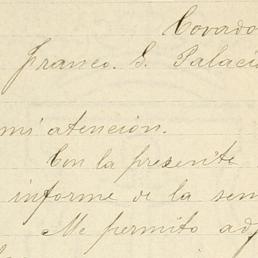 Covado
Franco. G. Palaci
mi atención.
Con la presente
informe de la sem
Me permito adj